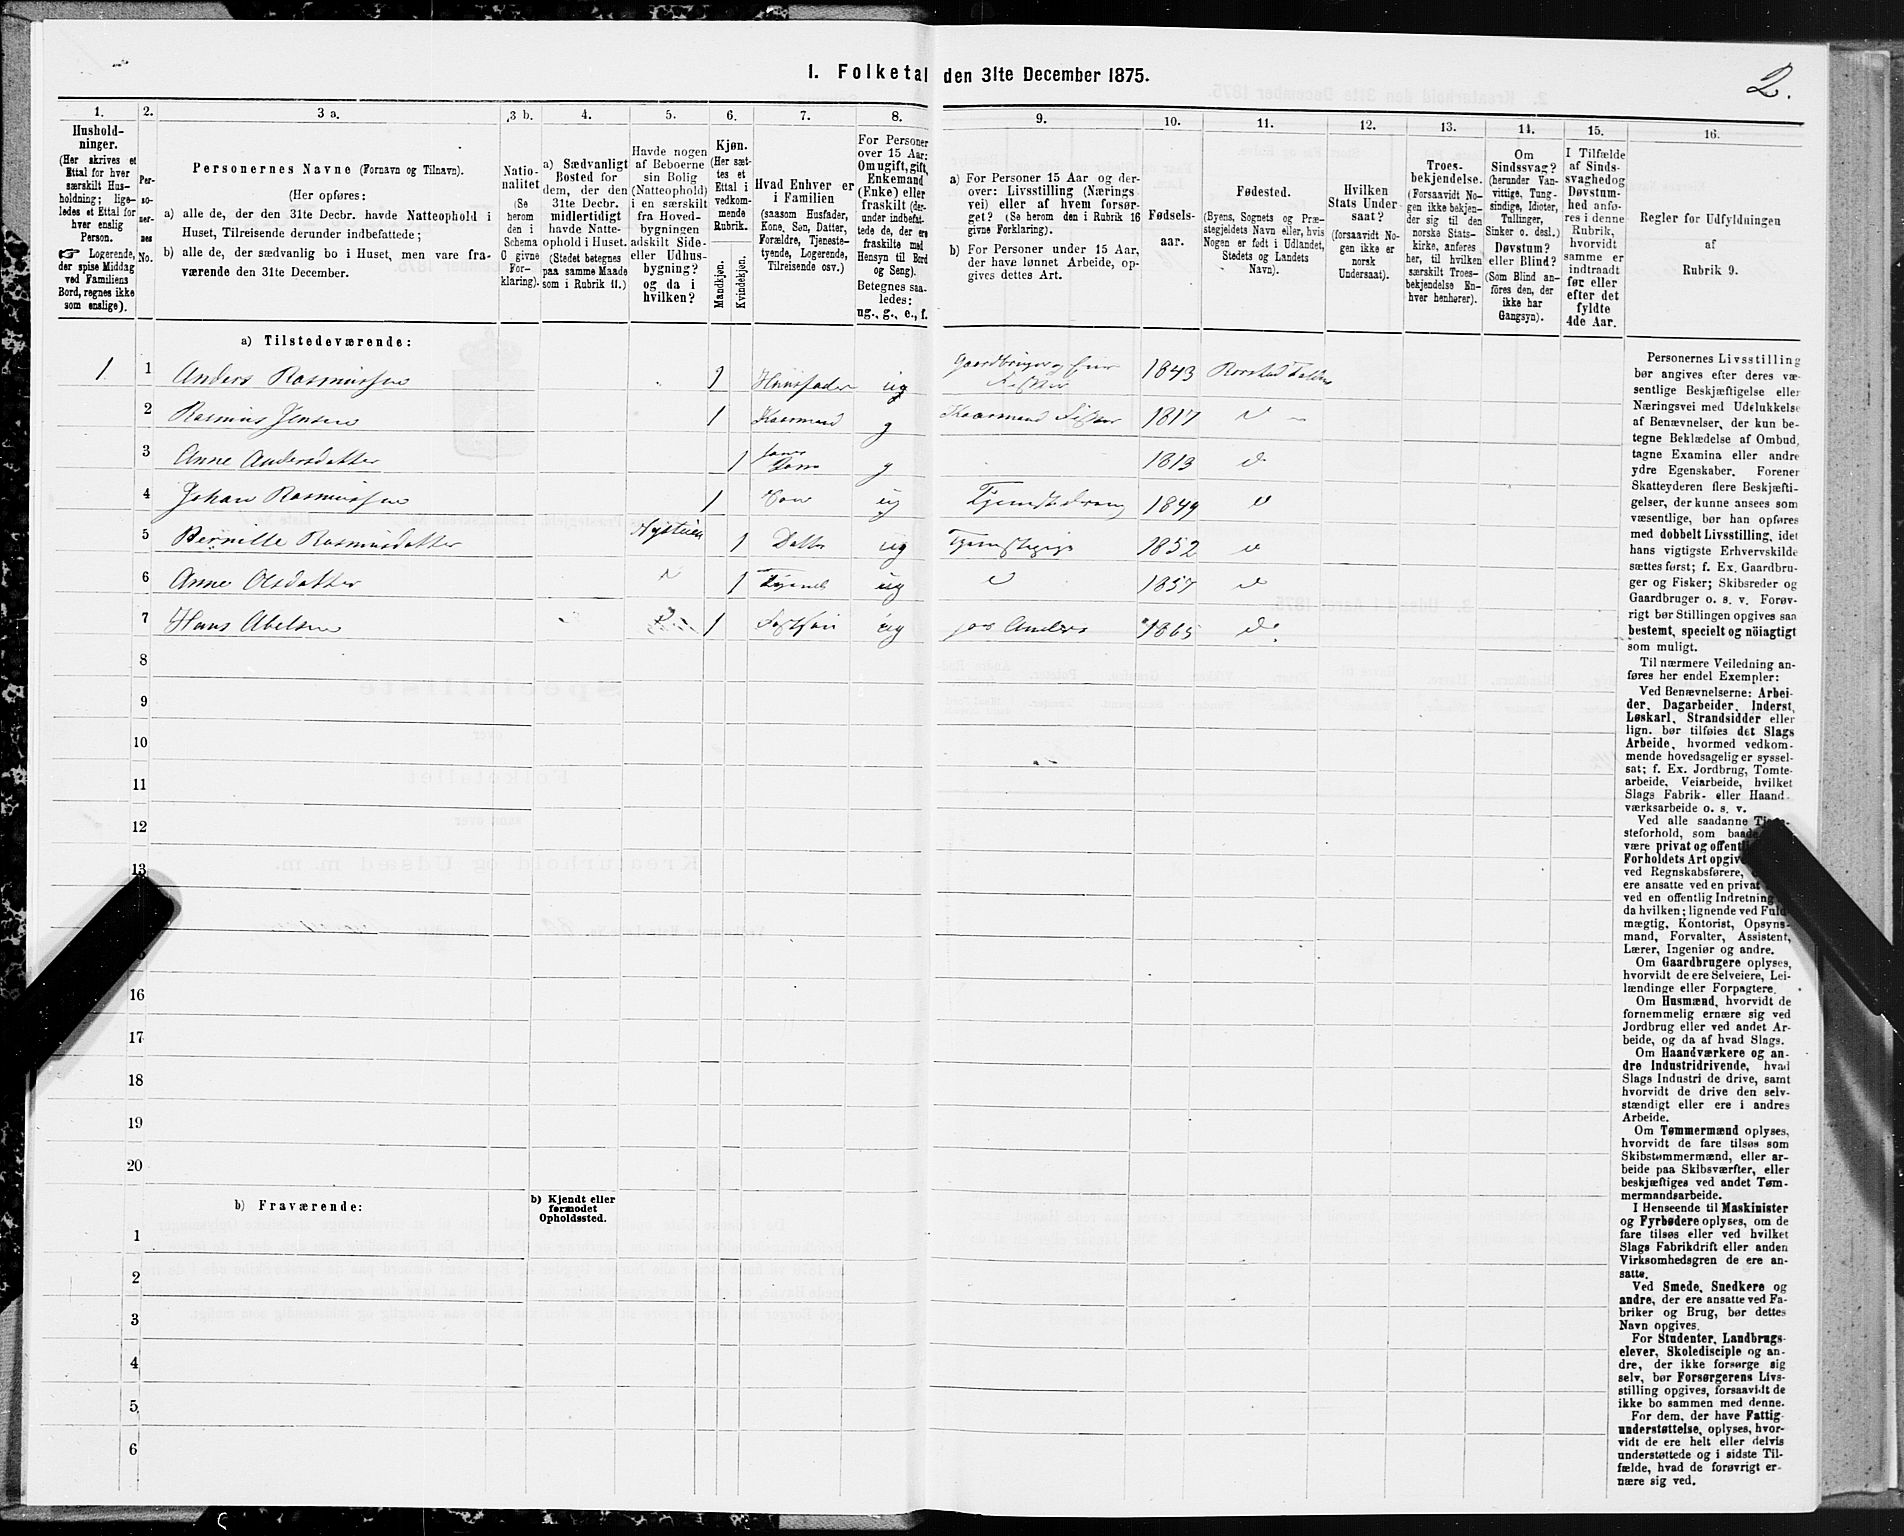 1. Folketal den 31te December 1875.
2.
1.
Hushold-
ninger.
(Her skrives et
Ettal for hver
særskilt Hus-
holdning; lige-
ledes et Ettal for
hver enslig
Person.
☞ Logerende,
der spise Middag
ved Familiens
Bord, regnes ikke
som enslige).
2.
Per-
so-
ner-
nes
No.
3 a.
Personernes Navne (Fornavn og Tilnavn).
(Her opføres:
a) alle de, der den 31te Decbr. havde Natteophold i
Huset, Tilreisende derunder indbefattede;
b) alle de, der sædvanlig bo i Huset, men vare fra-
værende den 31te December.
3 b.
Natio-
nalitet
(Se
herom
den i
Schema
C givne
For-
klaring).
4.
a) Sædvanligt
Bosted for
dem, der den
31te Decbr.
midlertidigt
havde Natte-
ophold i Huset.
(Stedet betegnes
paa samme Maade
som i Rubrik 11.)
5.
Havde nogen
af Beboerne
sin Bolig
(Natteophold)
i en særskilt
fra Hoved-
bygningen
adskilt Side-
eller Udhus-
bygning?
og da i
hvilken?
6.
Kjøn.
(Her sæt-
tes et
Ettal i
vedkom-
mende
Rubrik.
Mandkjøn.
Kvindekjøn.
7.
Hvad Enhver er
i Familien
(saasom Husfader,
Kone, Søn, Datter,
Forældre, Tjeneste-
tyende, Logerende,
Tilreisende osv.)
8.
For Personer
over 15 Aar:
Om ugift, gift,
Enkemand
(Enke) eller
fraskilt (der-
under indbefat-
tede de, der ere
fraskilte med
Hensyn til Bord
og Seng).
Betegnes saa-
ledes:
ug., g., e., f.
9.
a) For Personer 15 Aar og der-
over: Livsstilling (Nærings
vei) eller af hvem forsør-
get? (Se herom den i Rubrik 16
givne Forklaring).
b) For Personer under 15 Aar,
der have lønnet Arbeide, op-
gives dettes Art.
10.
Fødsels-
aar.
11.
Fødested.
(Byens, Sognets og Præ-
stegjeldets Navn eller, hvis
Nogen er født i Udlandet,
Stedets og Landets
Navn).
12.
Hvilken
Stats Under
saat?
(forsaavidt No-
gen ikke er
norsk
Undersaat).
13.
Troes-
bekjendelse.
(Forsaavidt No-
gen ikke bekjen-
der sig til den
norske Stats-
kirke, anføres
her, til hvilken
særskilt Troes-
bekjendelse En-
hver henhører).
14.
Om
Sindssvag?
(herunder Van-
vittige, Tung-
sindige, Idioter,
Tullinger,
Sinker o. desl.)
Døvstum?
eller Blind?
(Som Blind an-
føres den, der
ikke har
Gangsyn).
15.
I Tilfælde
af Sinds-
svaghed og
Døvstum-
hed anfø-
res i denne
Rubrik,
hvorvidt
samme er
indtraadt
før eller
efter det
fyldte
4de Aar.
16.
Regler før Udfyldningen
af
Rubrik 9.
a) Tilstedeværende:
1 1 Anders Rasmussen 1 Huusfader ug Gaardbruger og 1843
2 Rasmus Jensen 1 Kaarmand g Kaarmand 1817
3 Anne Andersdatter 1 g 1813
4 Johan Rasmussen 1 Søn ug 1849
5 Bernille Rasmusdatter 1 Datter ug 1852
6 Anne Olsdatter 1 ug 1857
7 Hans Abelsen 1 ug 1865
8
9
10
11
12
13
16
17
18
19
20
b) Fraværende:
b) Kjendt eller
formodet
Opholdssted.
1
2
3
4
5
6
Personernes Livsstilling
bør angives efter deres væ-
sentlige Beskjæftigelse eller
Næringsvei med Udelukkelse
af Benævnelser, der kun be-
tegne Beklædelse af Ombud,
tagne Examina eller andre
ydre Egenskaber. Forener
Skatteyderen flere Beskjæfti-
gelser, der kunne ansees som
væsentlige, bør han opføres
med dobbelt Livsstilling, idet
hans vigtigste Erhvervskilde
sættes først; f. Ex. Gaardbru-
ger og Fisker; Skibsreder og
Gaardbruger o. s. v. Forøv-
rigt bør Stillingen opgives saa
bestemt, specielt og nöiagtigt
som muligt.
Til nærmere Veiledning an-
føres her endel Exempler:
Ved Benævnelserne: Arbei-
der, Dagarbeider, Inderst,
Løskarl, Strandsidder eller
lign. bør tilføies det Slags
Arbeide, hvormed vedkom-
mende hovedsagelig er syssel-
sat; f. Ex. Jordbrug, Tomte-
arbeide, Veiarbeide, hvilket
Slags Fabrik- eller Haand-
værksarbeide o. s. v.
Ved alle saadanne
steforhold, som baade
være privat og
Forholdets Art
ved Regnskabsførere,
ere ansatte ved en privat
ved en offentlig Indretning
da hvilken; lignende ved Fuld-
mægtig, Kontorist, Opsyns-
mand, Forvalter, Assistent,
Lærer, Ingeniør og andre.
Om Gaardbrugere oplyses,
hvorvidt de ere Selveiere, Lei-
lændinge eller Forpagtere.
Om Husmænd, hvorvidt de
fornemmelig ernære sig ved
Jordbrug eller ved andet Ar-
beide, og da af hvad Slags.
Om Haandværkere og an-
dre Industridrivende, hvad
Slags Industri de drive, samt
hvorvidt de drive den selv-
stændigt eller ere i andres
Arbeide.
Om Tømmermænd oplyses,
hvorvidt de fare tilsøs som
Skibstømmermænd, eller ar-
beide paa Skibsværfter, eller
beskjæftiges ved andet Tøm-
mermandsarbeide.
I Henseende til Maskinister
og Fyrbødere oplyses, om de
fare tilsøs eller ved hvilket
Slags Fabrikdrift eller anden
Virksomhedsgren de ere an-
satte.
Ved Smede, Snedkere og
andre, der ere ansatte ved Fa-
briker og Brug, bør dettes
Navn opgives.
For Studenter, Landbrugs-
elever, Skoledisciple og an-
dre, der ikke forsørge sig
selv, bør Forsørgerens Livs-
stilling opgives, forsaavidt de
ikke bo sammen med denne.
For dem, der have Fattig-
understøttelse, oplyses, hvor-
vidt de ere helt eller delvis
understøttede og i sidste Til-
fælde, hvad de forøvrigt er-
nære sig ved.